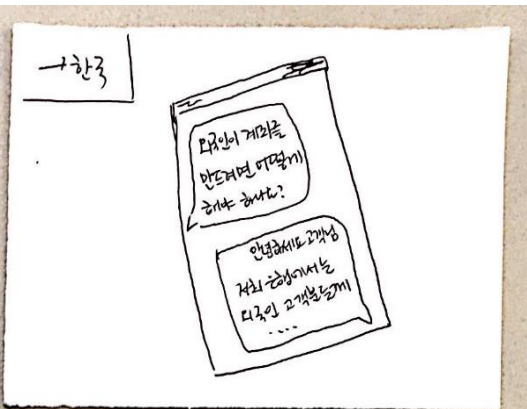 →한국
외국인이 계좌를
만드려면 어떻게
해야 하나요?
안녕하세요 고객님
저희 은행에서는
외국인 고객분들께
....